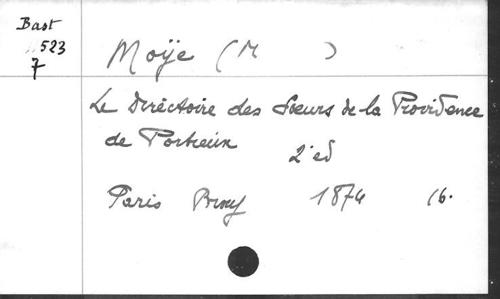 Bast
523
7
Moÿe (M )
Le Directoire des Sœurs de la Providence
de Portieux
2e ed
Paris Bray 1874 16.